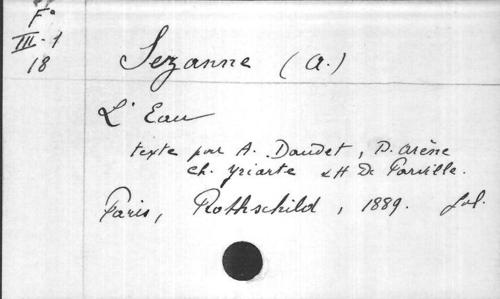 F°
III-1
18
Sezanne (A.)
L'Eau
texte par A. Daudet, P. Arène
Ch. Yriarte & H De Parville.
Paris, Rothschild, 1889. fol.